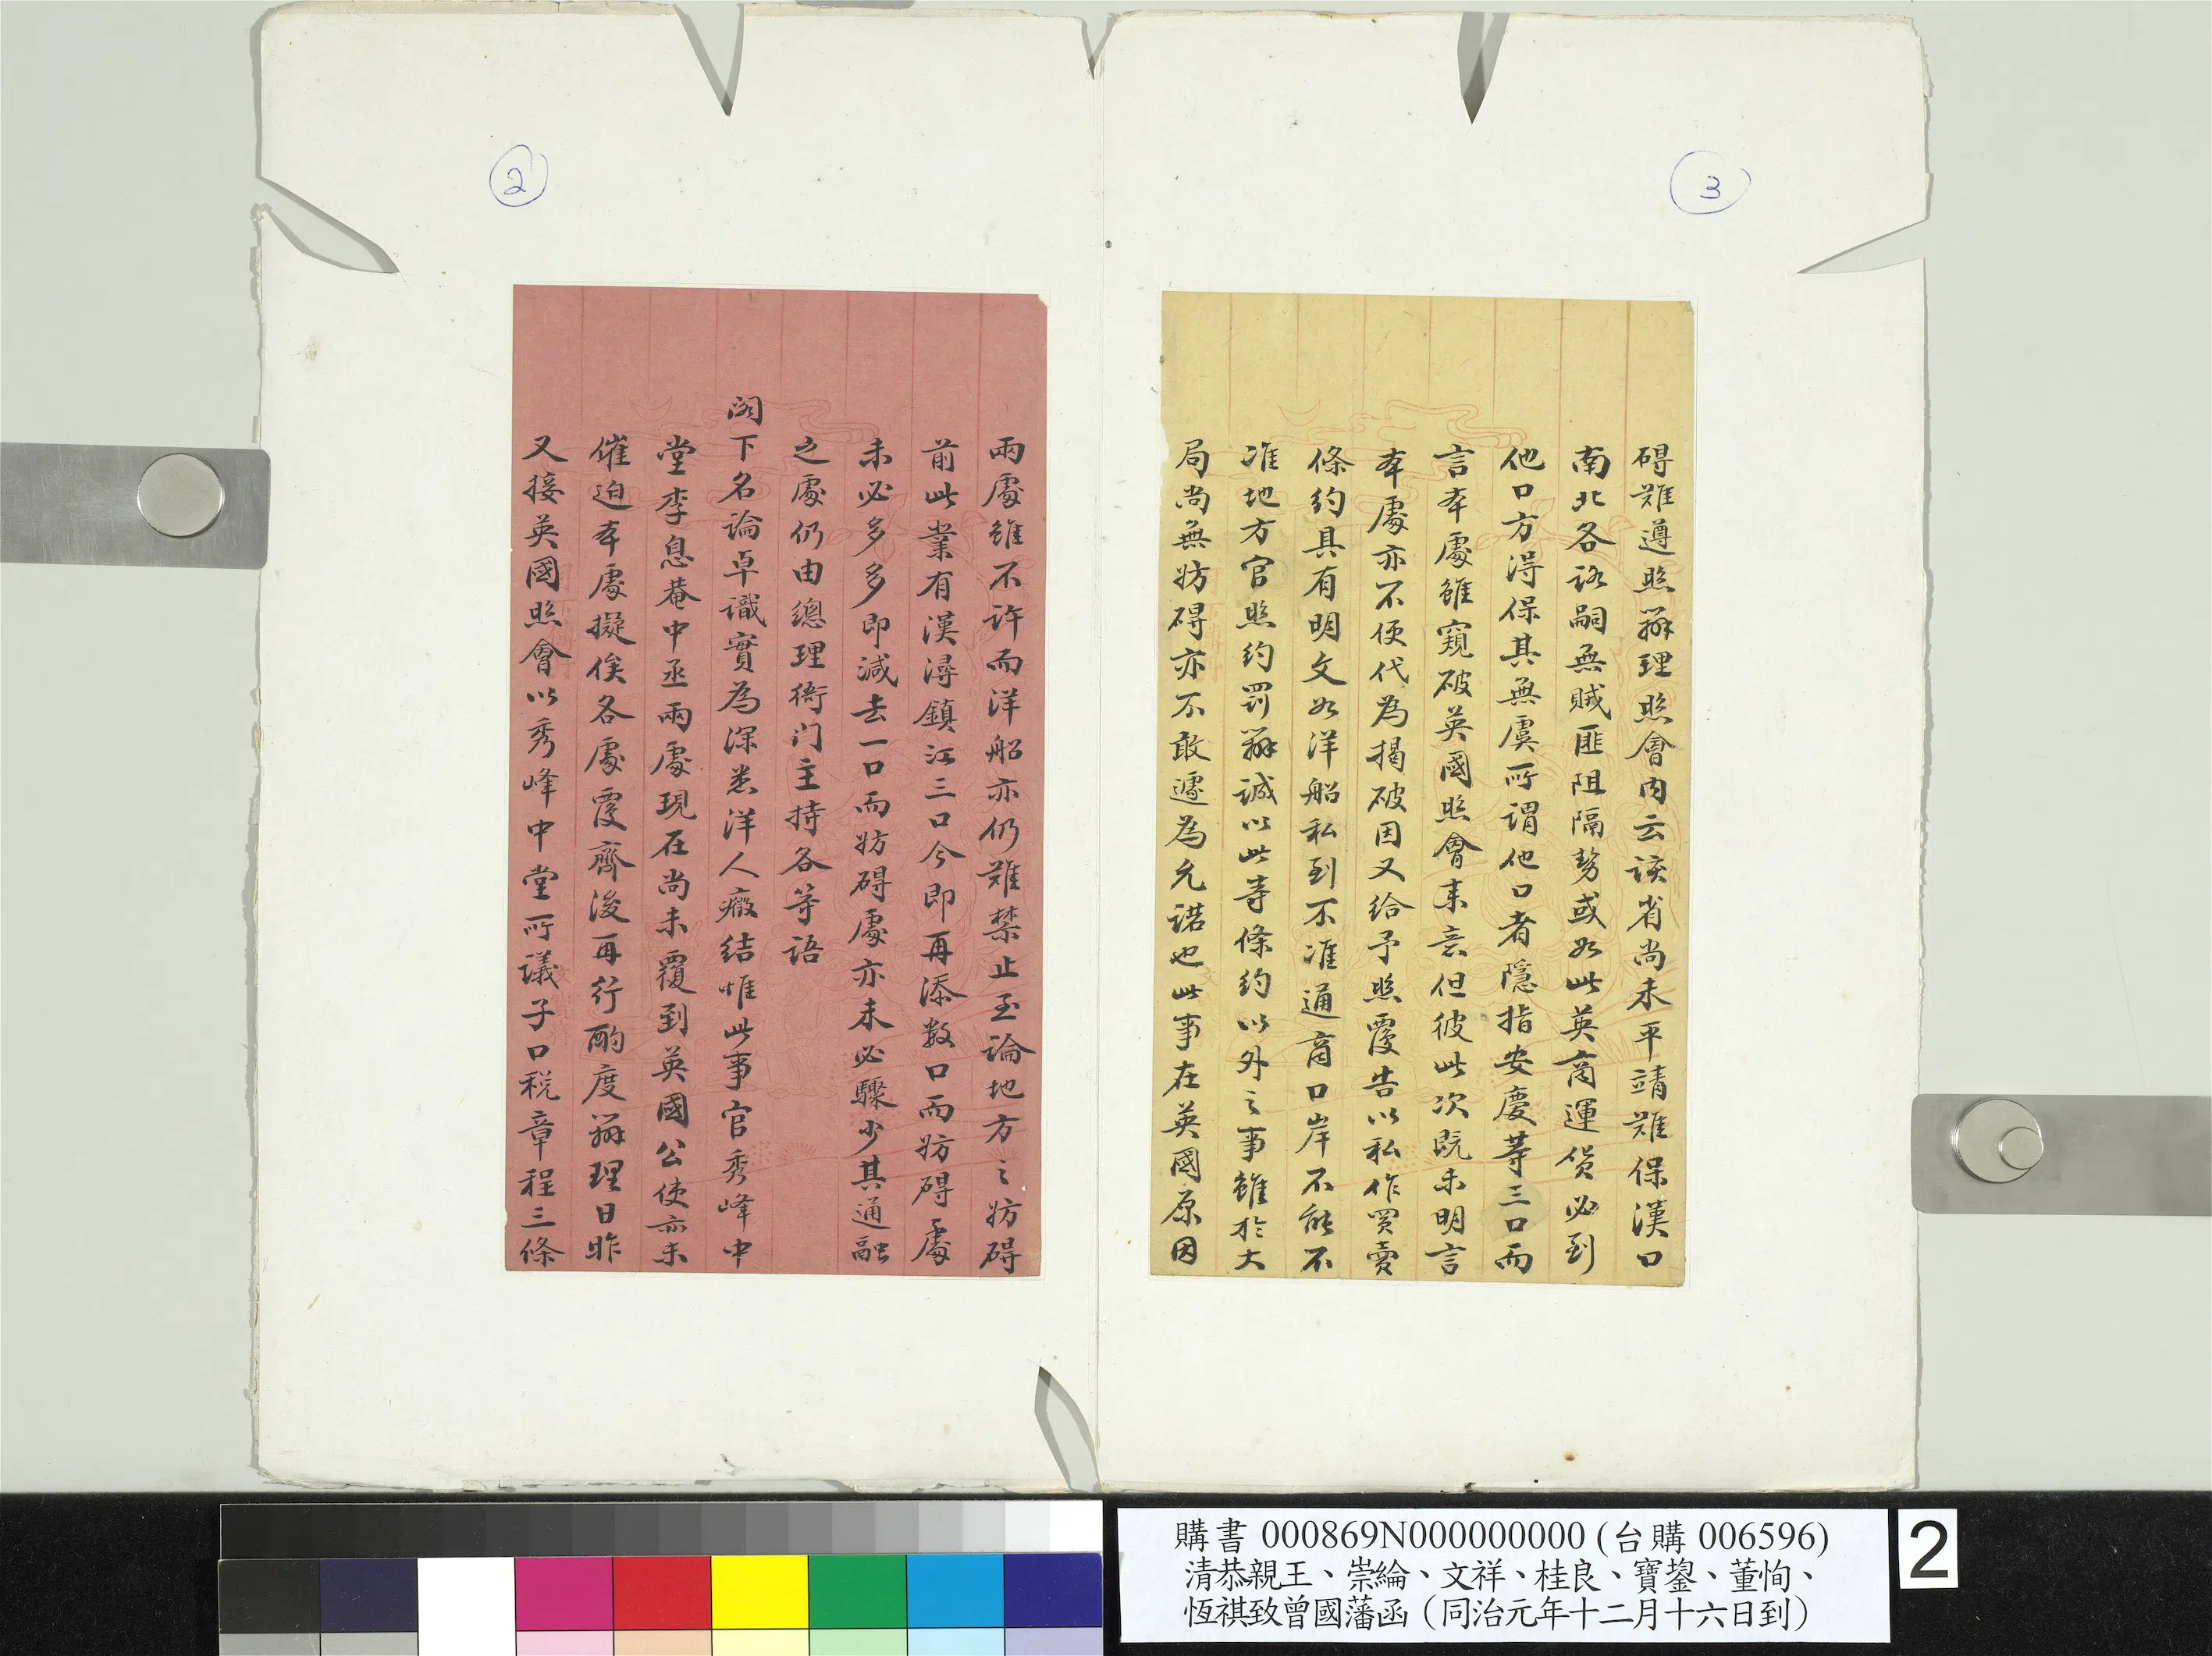 2
兩處雖不許而洋船亦仍難禁止至論地方之妨碍
前此業有漢潯鎮江三口今即再添數口而妨碍處
未必多多即減去一口而妨碍處亦未必驟少其通融
之處仍由總理衙门主持各等語
閣下名論卓識實為深悉洋人癥結惟此事官秀峰中
堂李息菴中丞兩處現在尚未覆到英國公使亦未
催迫本處擬俟各處覆齊後再行酌度辦理日昨
又接英國照會以秀峰中堂所議子口稅章程三條
3
碍難遵照辦理照會內云該省尚未平靖難保漢口
南北各路嗣無賊匪阻隔勢或如此英商運貨必到
他口方得保其無虞所謂他口者隱指安慶等三口而
言本處雖窺破英國照會來意但彼此次既未明言
本處亦不便代為揭破因又給予照覆告以私作買賣
條約具有明文如洋船私到不准通商口岸不能不
准地方官照約罰辦誠以此等條約以外之事雖於大
局尚無妨碍亦不敢遽為允諾也此事在英國原因
購書 000869N000000000 (台購 006596)
清恭親王、崇綸、文祥、桂良、寶鋆、董恂、
恆祺致曾國藩函（同治元年十二月十六日到）
2